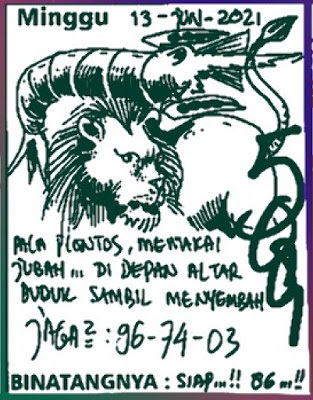 Minggu 13-JUN-2021
PALA PLONTOS, MEMAKAI
JUBAH... DI DEPAN ALTAR
DUDUK SAMBIL MENYEMBAH
JAGA²= : 96-74-03
BINATANGNYA : SIAP...!! 86...!!